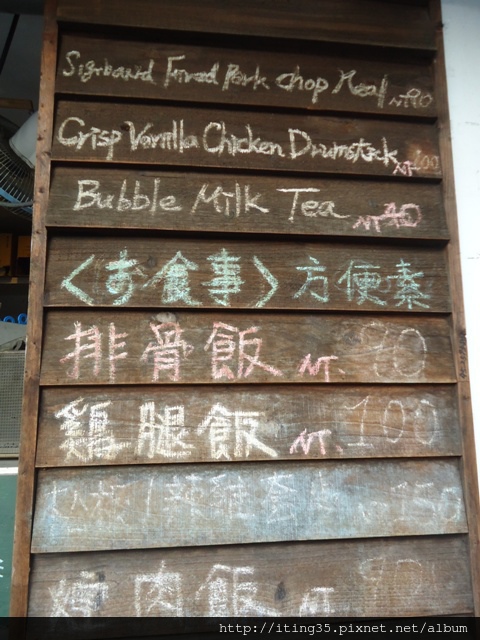 Signboard Fried Pork chop Meal NT90
Crisp Vanilla Chicken Drumstick NT100
Bubble Milk Tea NT40
〈お食事〉方便素
排骨飯 NT. 90
鶏腿飯 NT. 100
150
肉飯 NT
http://iting35.pixnet.net/album